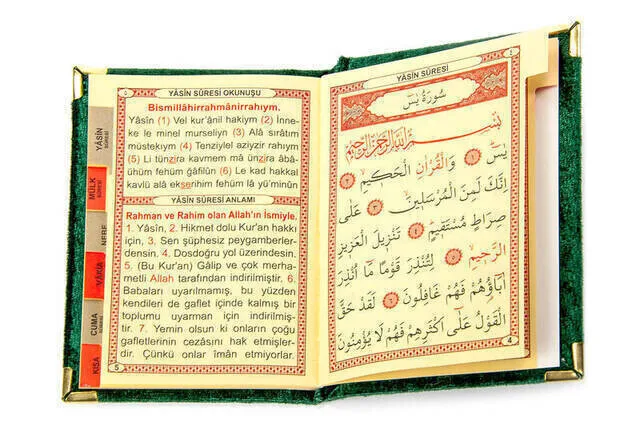 YÂSİN SÛRESİ
سُورَةُ يٰسٓ
بِسْمِ اللّٰهِ الرَّحْمٰنِ الرَّحِيمِ
يٰسٓ ﴿١﴾ وَالْقُرْاٰنِ الْحَكِيمِ ﴿٢﴾
اِنَّكَ لَمِنَ الْمُرْسَلِينَ ﴿٣﴾ عَلٰى
صِرَاطٍ مُسْتَقِيمٍ ﴿٤﴾ تَنْزِيلَ الْعَزِيزِ
الرَّحِيمِ ﴿٥﴾ لِتُنْذِرَ قَوْمًا مَٓا اُنْذِرَ
اٰبَٓاؤُهُمْ فَهُمْ غَافِلُونَ ﴿٦﴾ لَقَدْ حَقَّ
الْقَوْلُ عَلٰٓى اَكْثَرِهِمْ فَهُمْ لَا يُؤْمِنُونَ
4
YÂSİN SÛRESİ OKUNUŞU
Bismillâhirrahmânirrahıym.
Yâsîn (1) Vel kur'ânil hakiym (2) İnne-
ke le minel murseliyn (3) Alâ sırâtım
müstekiym (4) Tenziylel aziyzir rahıym
(5) Li tünzira kavmem mâ ünzira âbâ-
ühüm fehüm ğâfilûn (6) Le kad hakkal
kavlü alâ ekserihim fehüm lâ yü'minûn
YÂSİN SÛRESİ ANLAMI
Rahman ve Rahim olan Allah'ın İsmiyle.
1. Yâsîn, 2. Hikmet dolu Kur'an hakkı
için, 3. Sen şüphesiz peygamberler-
densin. 4. Dosdoğru yol üzerindesin.
5. (Bu Kur'an) Gâlip ve çok merha-
metli Allah tarafından indirilmiştir. 6.
Babaları uyarılmamış, bu yüzden
kendileri de gaflet içinde kalmış bir
toplumu uyarman için indirilmiş-
tir. 7. Yemin olsun ki onların çoğu
gafletlerinin cezasını hak etmişler-
dir. Çünkü onlar îmân etmiyorlar.
5
YÂSİN
SÛRESİ
MÜLK
SÛRESİ
NEBE
VÂKIA
CUMA
KISA